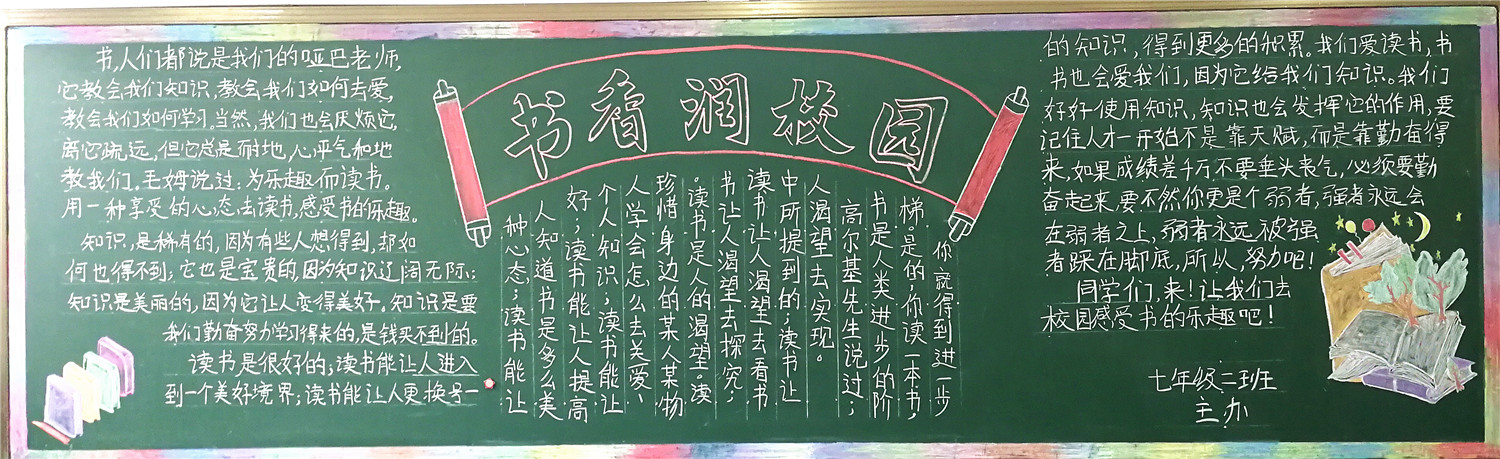 书香润校园
书,人们都说是我们的哑巴老师,
它教会我们知识,教会我们如何去爱,
教会我们如何学习。当然,我们也会厌烦它,
离它疏远,但它总是耐地,心平气和地
教我们。毛姆说过:为乐趣而读书。
用一种享受的心态,去读书,感受书的乐趣。
知识,是稀有的,因为有些人想得到,却如
何也得不到;它也是宝贵的,因为知识辽阔无际;
知识是美丽的,因为它让人变得美好。知识是要
我们勤奋努力学习得来的,是钱买不到的。
读书是很好的;读书能让人进入
到一个美好境界;读书能让人更换号一
种心态;读书能让
人知道书是多么美
好;读书能让人提高
个人知识;读书能让
人学会怎么去关爱、
珍惜身边的某人某物
。读书是人的渴望。读
书让人渴望去探究;
读书让人渴望去看书
中所提到的;读书让
人渴望去实现。
高尔基先生说过;
书是人类进步的阶
梯。是的,你读一本书,
你就得到进一步
的知识,得到更多的积累。我们爱读书,书
书也会爱我们,因为它给我们知识。我们
好好使用知识,知识也会发挥它的作用,要
记住人才一开始不是靠天赋,而是靠勤奋得
来,如果成绩差千万不要垂头丧气,必须要勤
奋起来,要不然你更是个弱者,强者永远会
在弱者之上,弱者永远被强
者踩在脚底,所以,努力吧!
同学们,来!让我们去
校园感受书的乐趣吧!
七年级二班
主办